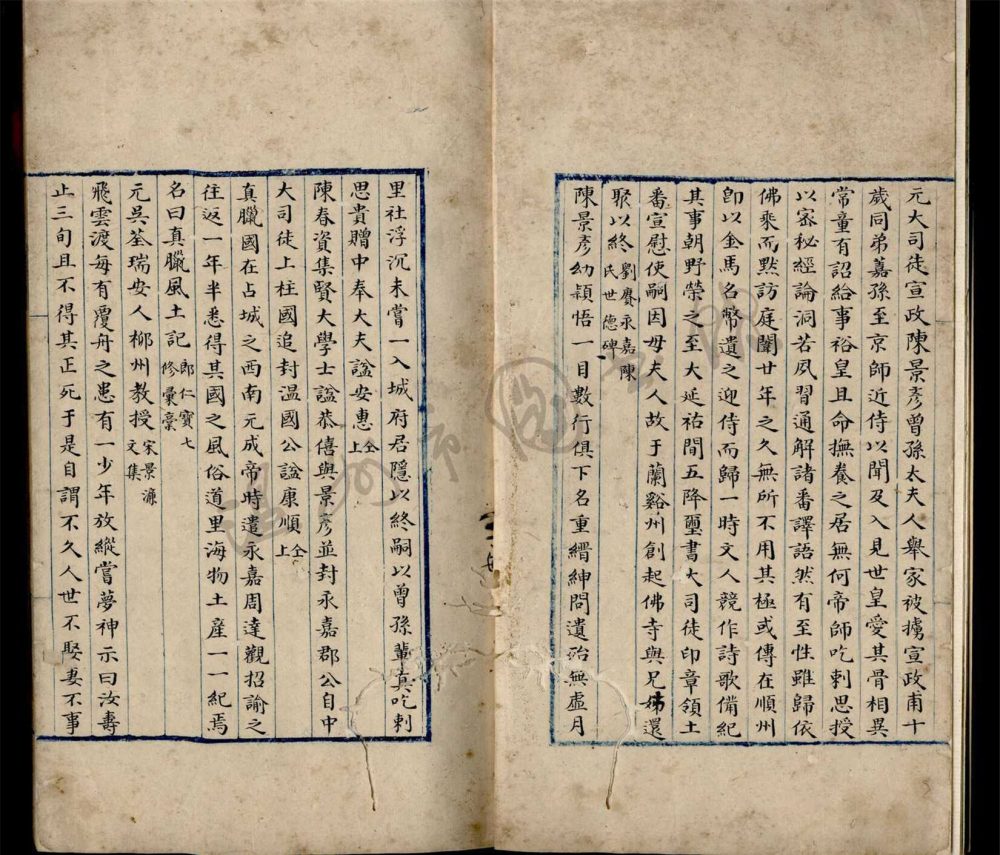 元大司徒宣政陳景彦曾孫太夫人舉家被擄宣政甫十
歲同弟嘉孫至京師近侍以聞及入見世皇愛其骨相異
常童有詔給事裕皇且命撫養之居無何帝師吃剌思授
以宻秘經論洞若夙習通解諸番譯語然有至性雖歸依
佛乘而默訪庭闈廿年之久無所不用其極或傳在順州
卽以金馬名幣遺之迎侍而歸一時文人競作詩歌備紀
其事朝野榮之至大延祐間五降璽書大司徒印章領土
番宣慰使嗣因母夫人故于蘭谿州創起佛寺與兄姊還
聚以終 劉賡永嘉陳氏世德碑
陳景彦幼頴悟一目數行俱下名重縉紳問遺殆無虛月
里社浮沉未嘗一入城府居隱以終嗣以曾孫輩真吃剌
思貴贈中奉大夫諡安惠 仝上
陳春資集賢大學士諡恭僖與景彦並封永嘉郡公自中
大司徒上柱國追封温國公諡康順 仝上
真臘國在占城之西南元成帝時遣永嘉周達觀招諭之
往返一年半悉得其國之風俗道里海物土産一一紀焉
名曰真臘風土記 郎仁寶七修彚稾
元吳荃瑞安人柳州教授 宋景濂文集
飛雲渡每有覆舟之患有一少年放縱嘗夢神示曰汝壽
止三旬且不得其正死于是自謂不久人世不娶妻不事